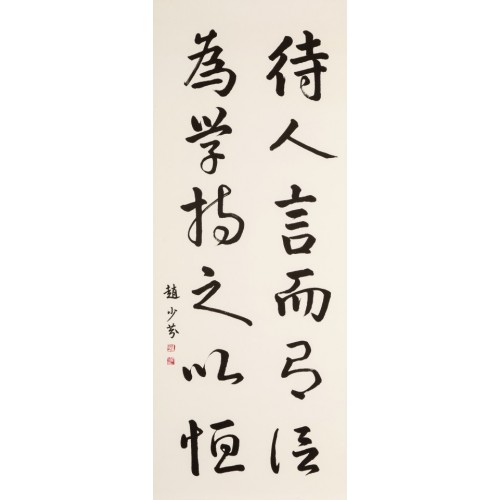 待人言而有信
為学持之以恒
趙少芬